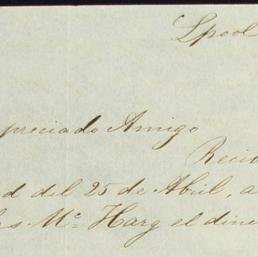 Lpool
preciado Amigo
Recib
d del 25 de Abril, a
s Mc Harg el dine